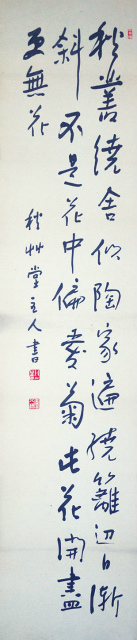 秋叢繞舍似陶家遍繞籬邊日漸
斜不是花中偏愛菊此花開盡
更無花
秋艸堂主人書